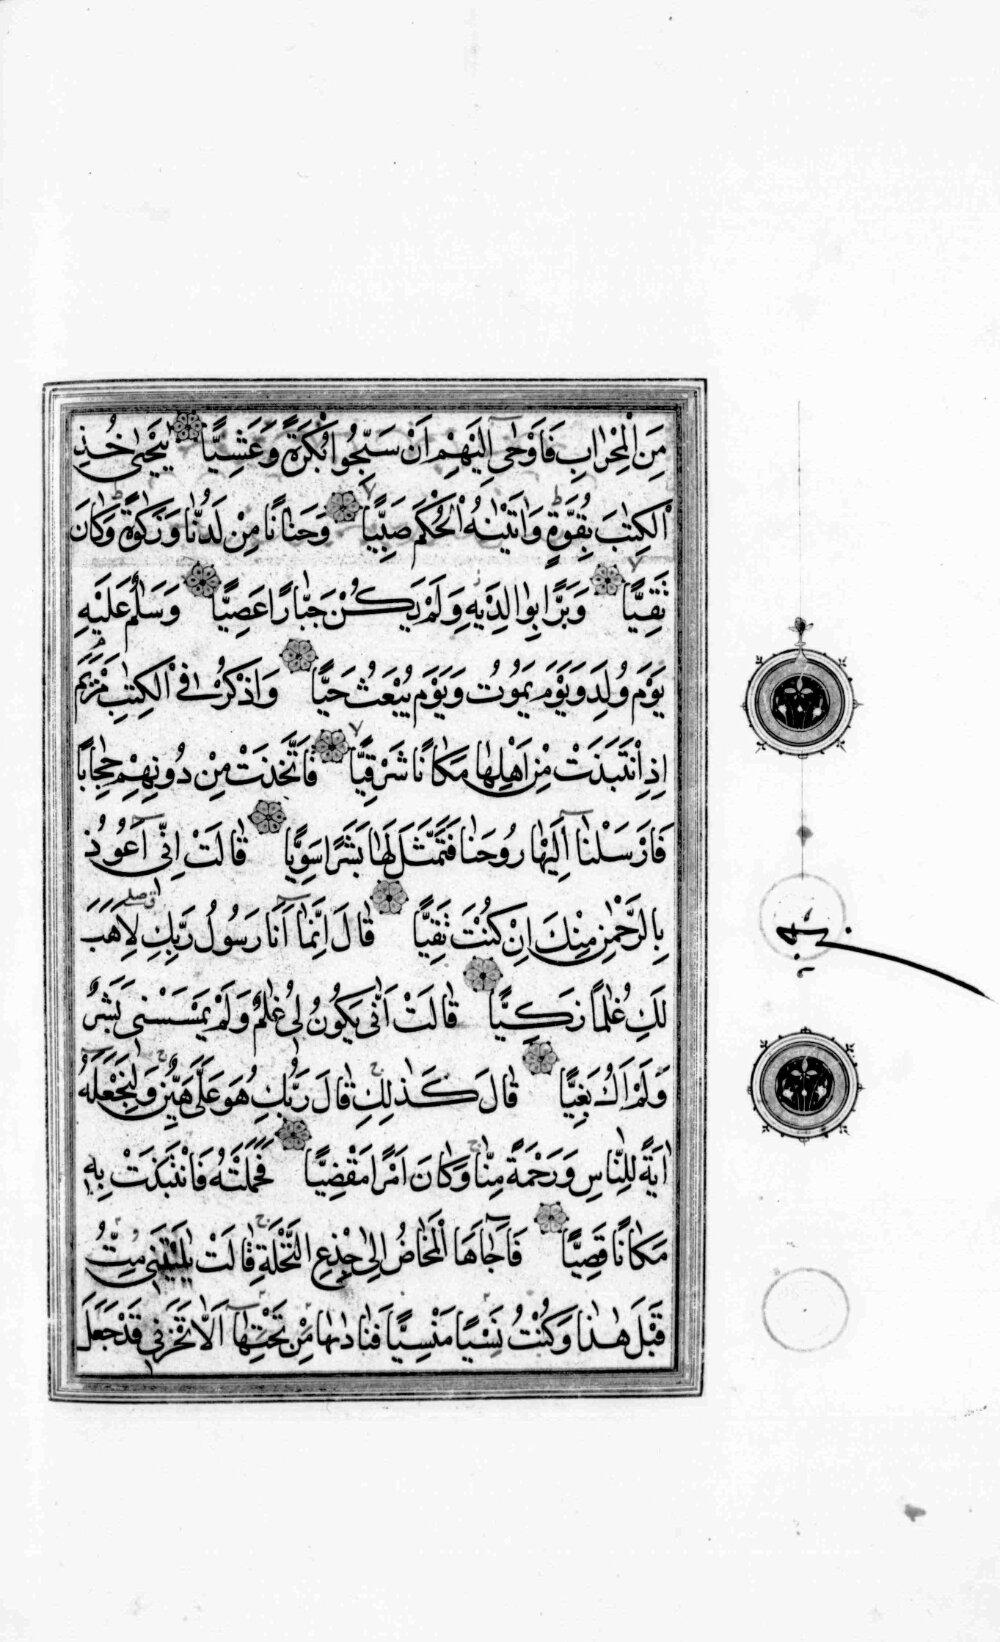 مِنَ الْمِحْرَابِ فَاَوْحٰى اِلَيْهِمْ اَنْ سَبِّحُوا بُكْرَةً وَعَشِيًّا يٰيَحْيٰى خُذِ
الْكِتٰبَ بِقُوَّةٍ وَاٰتَيْنٰهُ الْحُكْمَ صَبِيًّا وَحَنَانًا مِنْ لَدُنَّا وَزَكٰوةً وَكَانَ
تَقِيًّا وَبَرًّا بِوَالِدَيْهِ وَلَمْ يَكُنْ جَبَّارًا عَصِيًّا وَسَلٰمٌ عَلَيْهِ
يَوْمَ وُلِدَ وَيَوْمَ يَمُوتُ وَيَوْمَ يُبْعَثُ حَيًّا وَاذْكُرْ فِي الْكِتٰبِ مَرْيَمَ
اِذِ انْتَبَذَتْ مِنْ اَهْلِهَا مَكَانًا شَرْقِيًّا فَاتَّخَذَتْ مِنْ دُونِهِمْ حِجَابًا
فَاَرْسَلْنَا اِلَيْهَا رُوحَنَا فَتَمَثَّلَ لَهَا بَشَرًا سَوِيًّا قَالَتْ اِنِّي اَعُوذُ
بِالرَّحْمٰنِ مِنْكَ اِنْ كُنْتَ تَقِيًّا قَالَ اِنَّمَا اَنَا رَسُولُ رَبِّكِ لِاَهَبَ
لَكِ غُلٰمًا زَكِيًّا قَالَتْ اَنّٰى يَكُونُ لِي غُلٰمٌ وَلَمْ يَمْسَسْنِي بَشَرٌ
وَلَمْ اَكُ بَغِيًّا قَالَ كَذٰلِكِ قَالَ رَبُّكِ هُوَ عَلَيَّ هَيِّنٌ وَلِنَجْعَلَهُ
اٰيَةً لِلنَّاسِ وَرَحْمَةً مِنَّا وَكَانَ اَمْرًا مَقْضِيًّا فَحَمَلَتْهُ فَانْتَبَذَتْ بِهِ
مَكَانًا قَصِيًّا فَاَجَاءَهَا الْمَخَاضُ اِلٰى جِذْعِ النَّخْلَةِ قَالَتْ يٰلَيْتَنِي مِتُّ
قَبْلَ هٰذَا وَكُنْتُ نَسْيًا مَنْسِيًّا فَنَادٰىهَا مِنْ تَحْتِهَا اَلَّا تَحْزَنِي قَدْ جَعَلَ